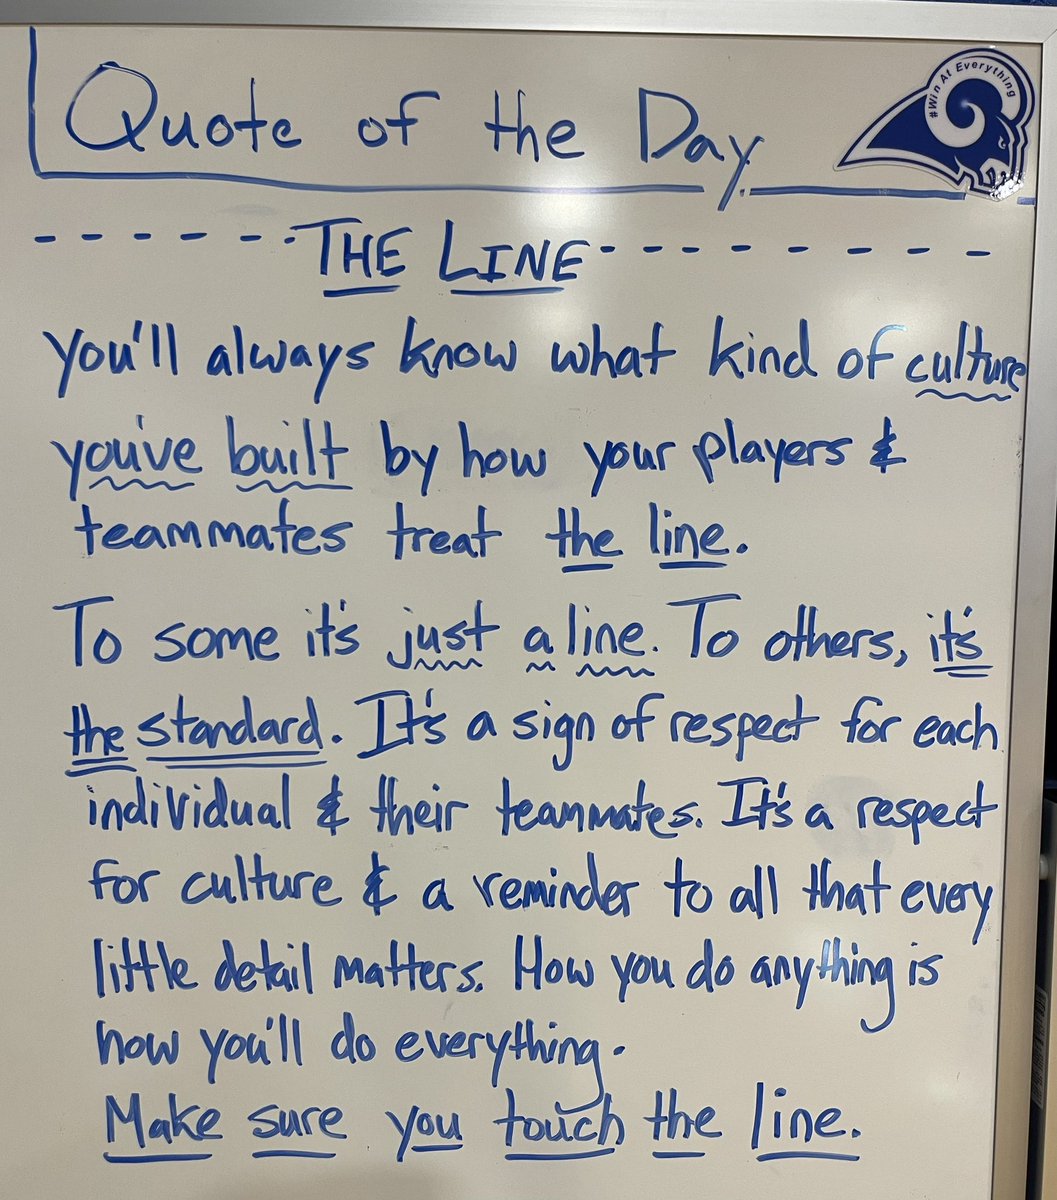 Quote of the Day
#Win At Everything
THE LINE
You'll always know what kind of culture
you've built by how your players &
teammates treat the line.
To some it's just a line. To others, it's
the standard. It's a sign of respect for each
individual & their teammates. It's a respect
for culture & a reminder to all that every
little detail matters. How you do anything is
how you'll do everything.
Make sure you touch the line.